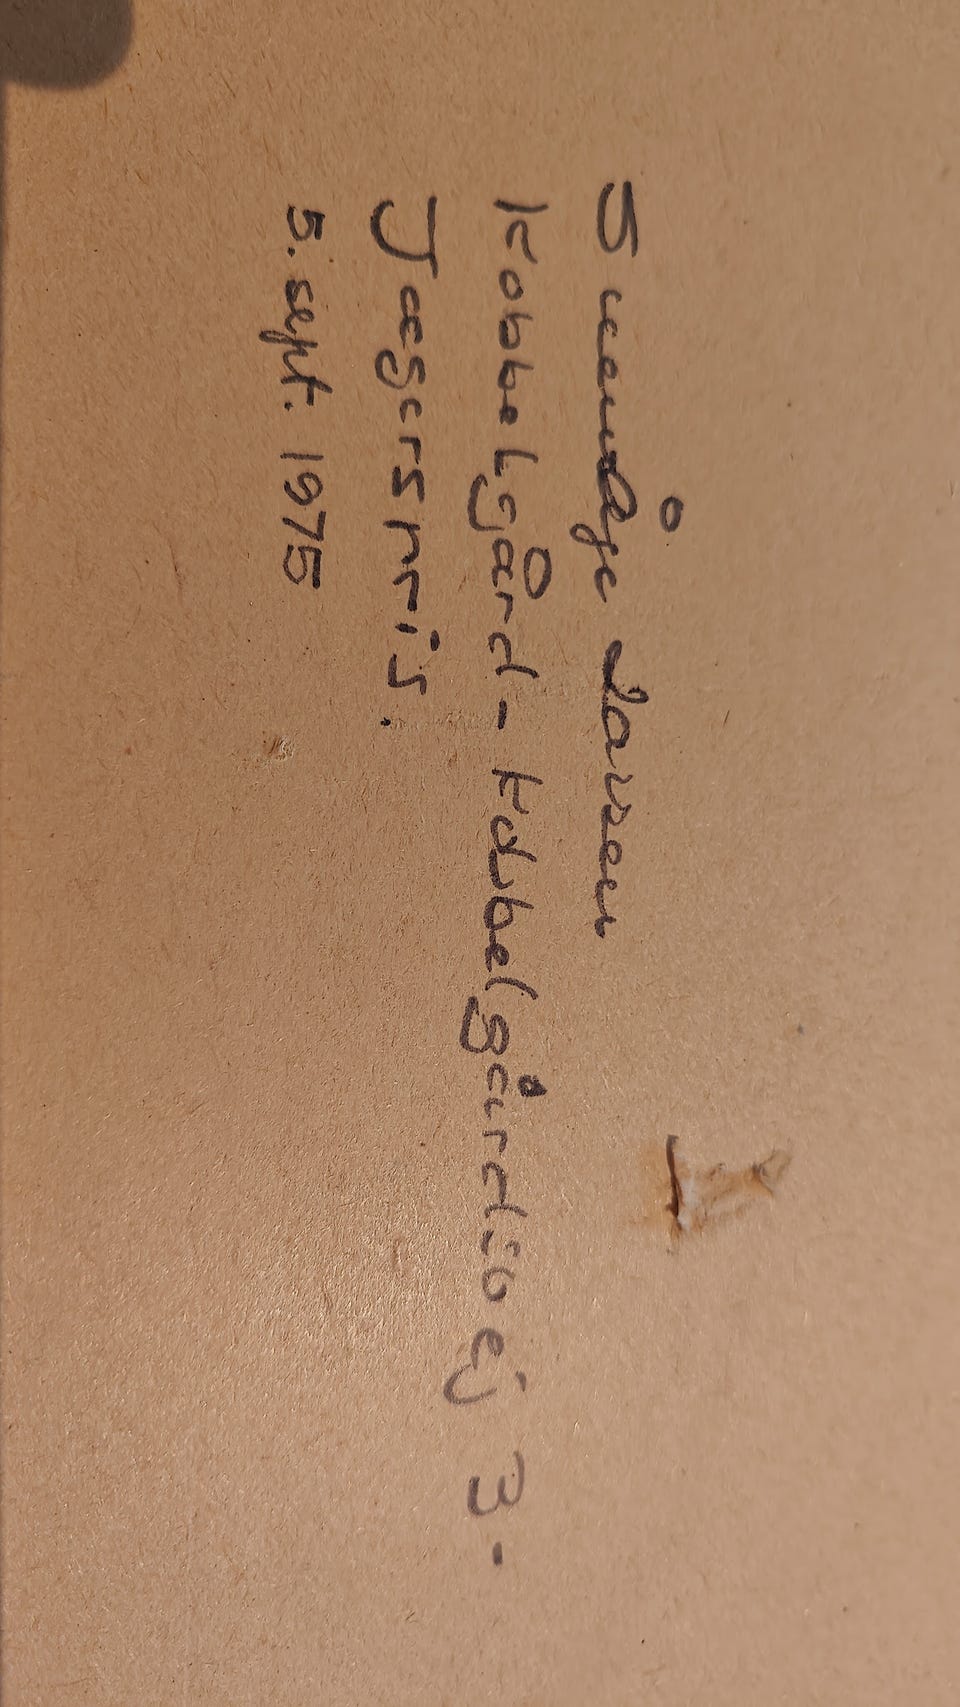 Svend Åge Larsen
Kobbelgård - Kobbelgårdsvej 3.
Jægerspris.
5. sept. 1975